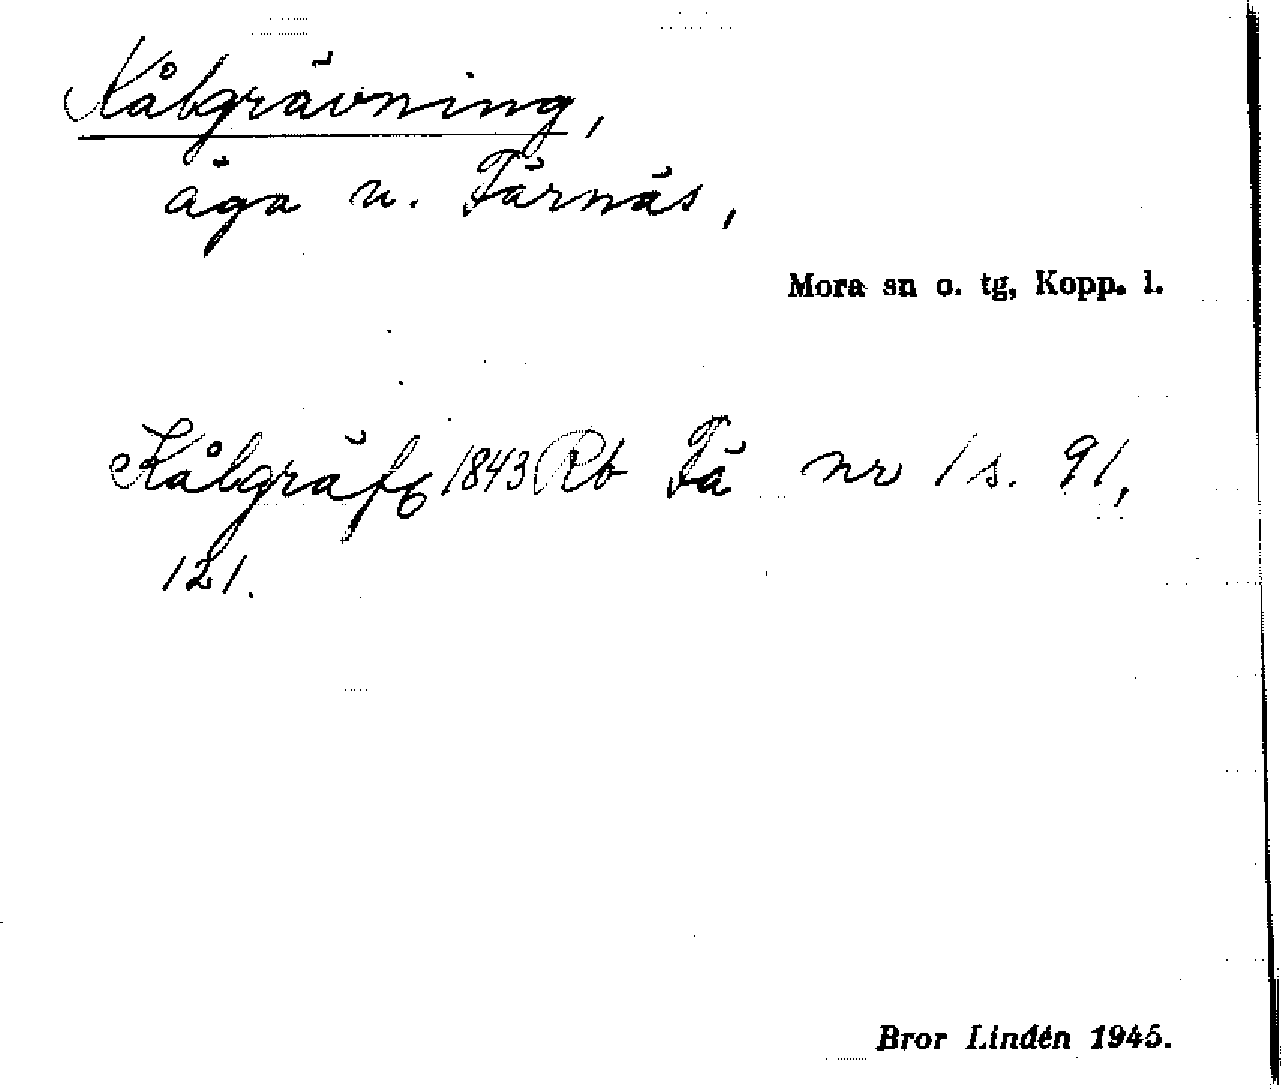 Kålgrävning,
äga u. Färnäs,
Mora sn o. tg, Kopp. l.
Kålgräfg 1843 Rb Fä nr 1 s. 91,
121.
Bror Lindén 1945.